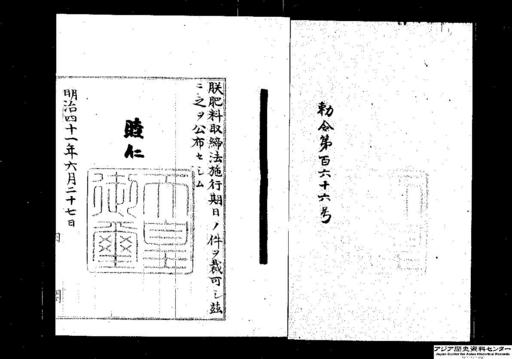 勅令第百六十六号
朕肥料取締法施行期日ノ件ヲ裁可シ茲
ニ之ヲ公布セシム
睦仁
天皇
御璽
明治四十一年六月二十七日
アジア歴史資料センター
Japan Center for Asian Historical Records